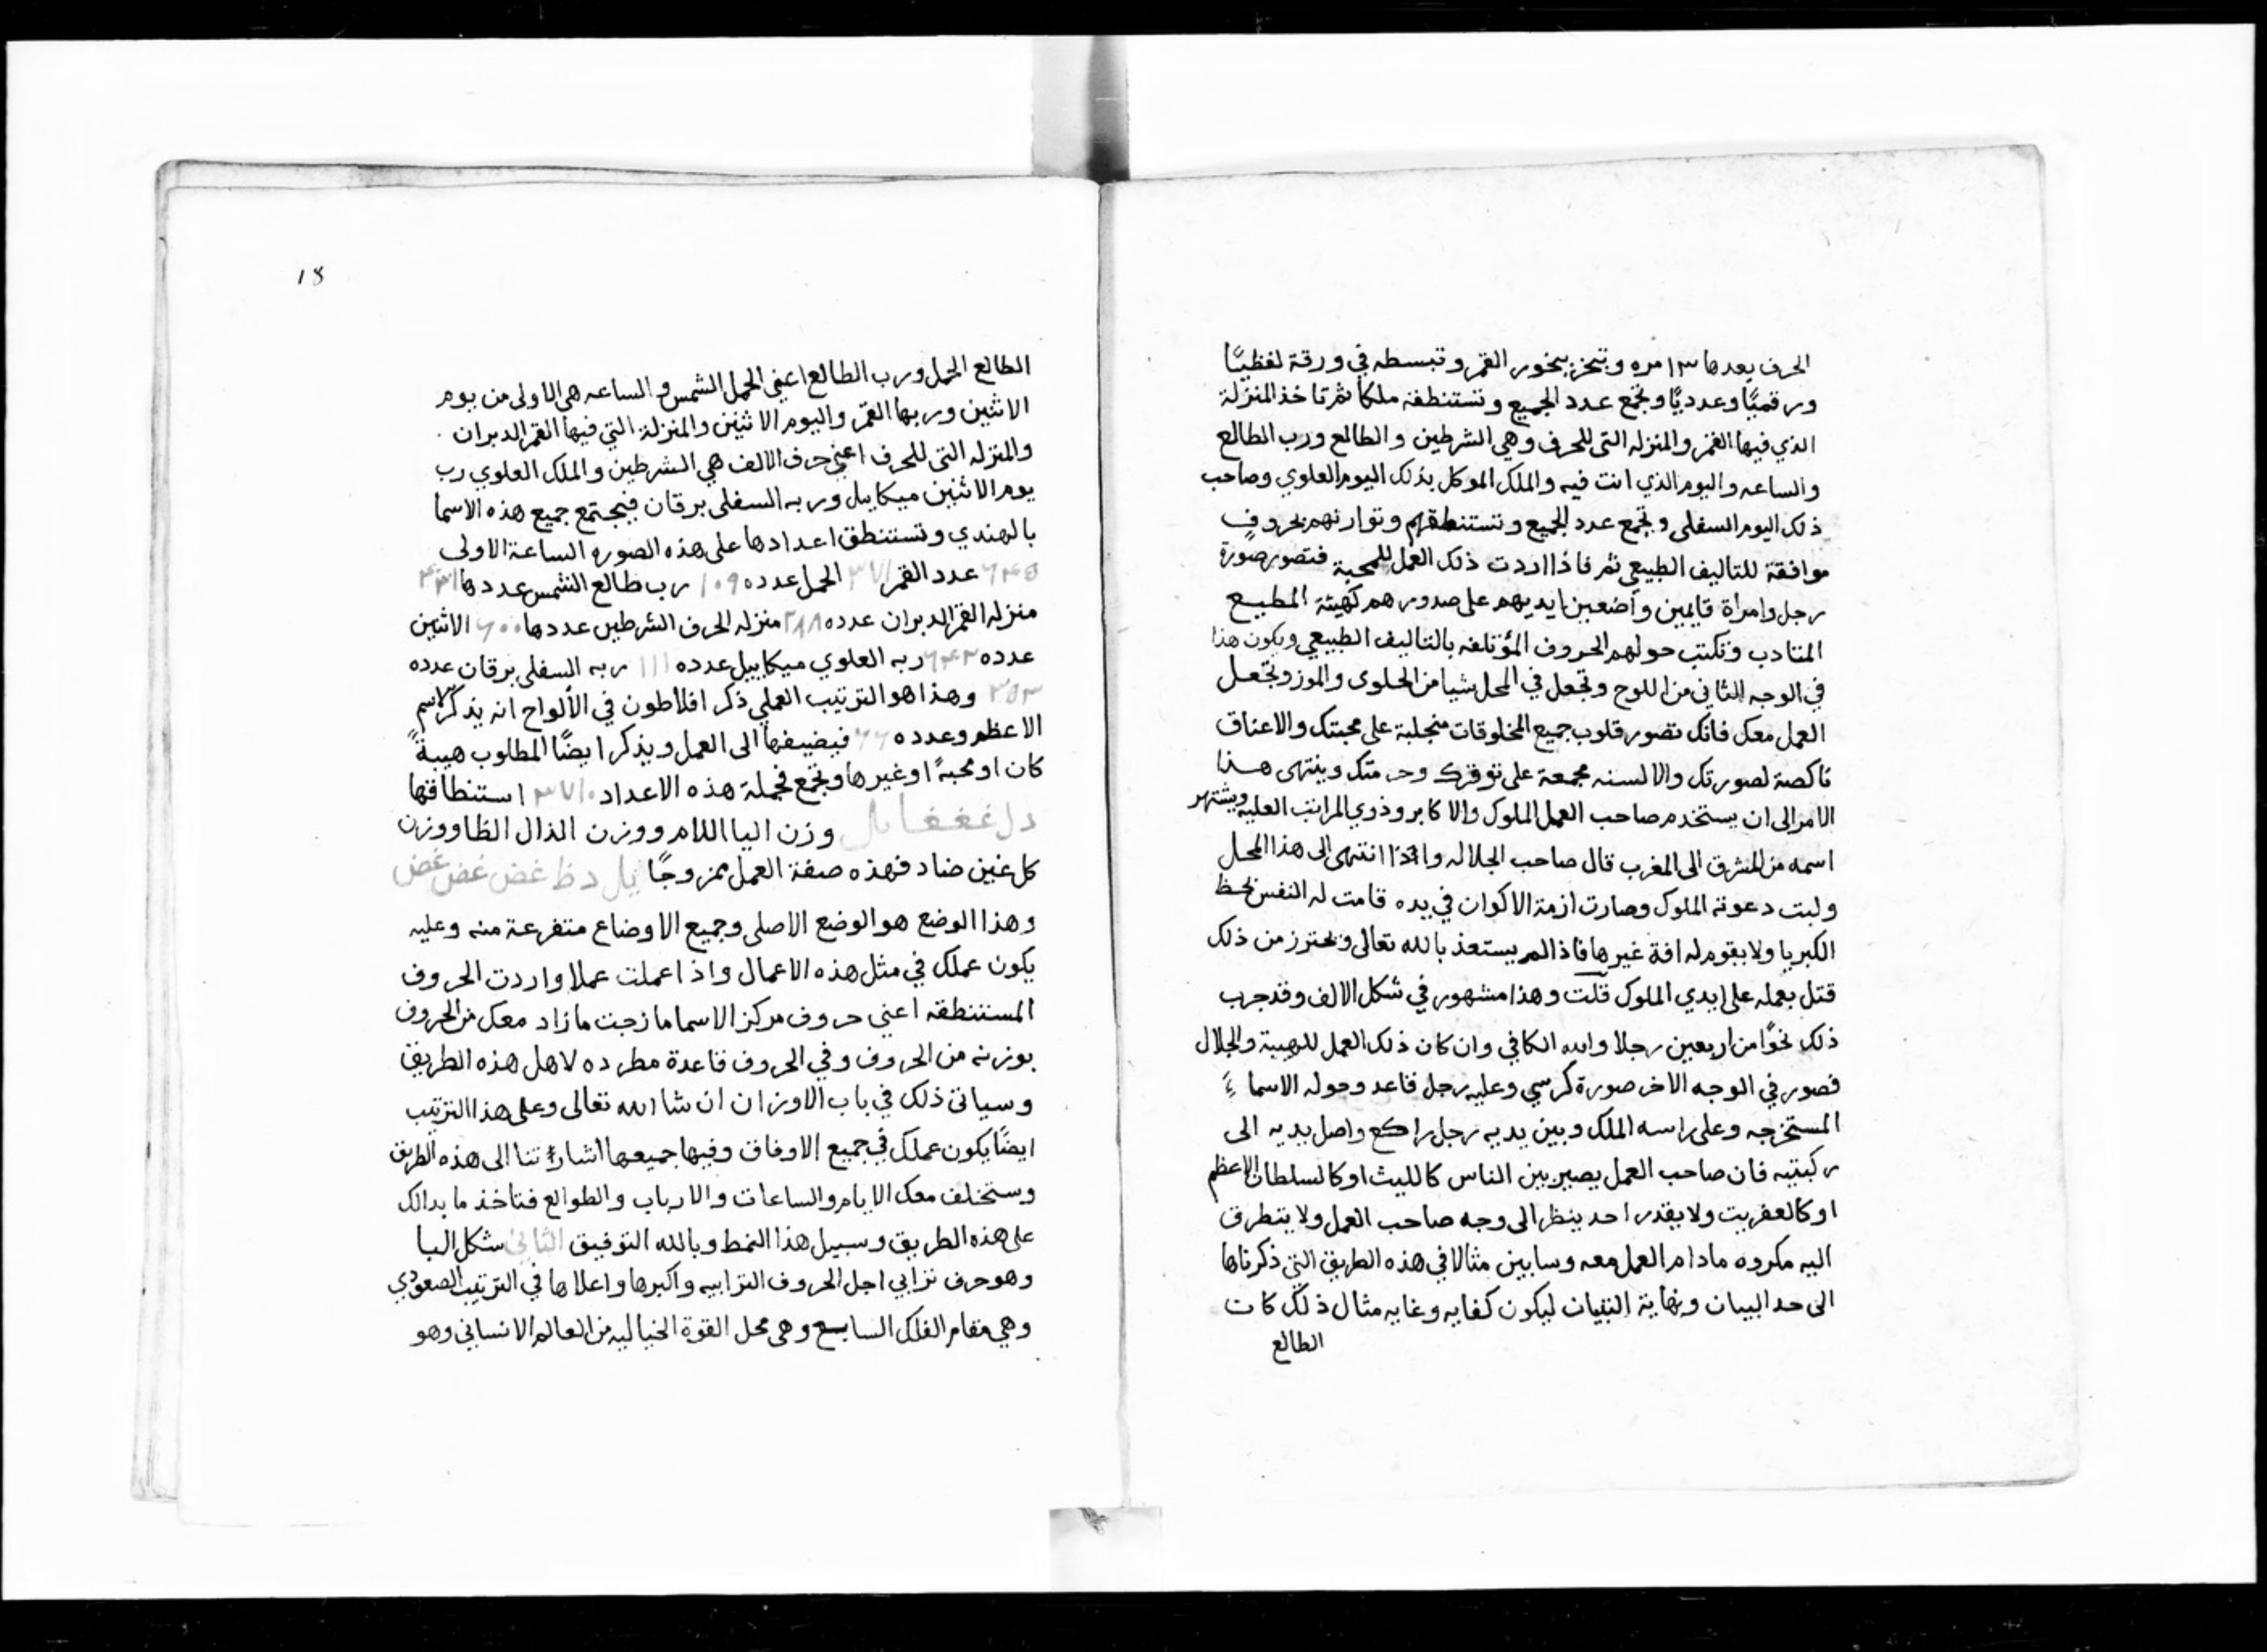 الحرف بعدها ١٣ مره وتبخر ببخور القمر وتبسطه في ورقة لفظيًا
ورقميًا وعدديًا وتجمع عدد الجميع وتستنطقه ملكا ثم تاخذ المنزلة
الذي فيها القمر والمنزله التى للحرف وهي الشرطين والطالع ورب الطالع
والساعه واليوم الذي انت فيه والملك الموكل بذلك اليوم العلوي وصاحب
ذلك اليوم السفلى وتجمع عدد الجميع وتستنطقهم وتوازنهم بحروف
موافقة للتاليف الطبيعي ثم فاذا اردت ذلك العمل للمحبة فتصور صورة
رجل وامراة قايمين واضعين ايديهم على صدورهم كهيئة المطيع
المتادب وتكتب حولهم الحروف المؤتلفه بالتاليف الطبيعي ويكون هذا
في الوجه الثاني من اللوح وتجعل في المحل شيا من الحلوى والموز وتجعل
العمل معك فانك تصور قلوب جميع المخلوقات منجلبة على محبتك والاعناق
ناكصة لصورتك والالسنه مجمعة على توقرك وحرمتك وينتهى هذا
الامر الى ان يستخدم صاحب العمل الملوك والاكابر وذوي المراتب العليه ويشتهر
اسمه من المشرق الى المغرب قال صاحب الجلاله واذا انتهى الى هذا المحل
ولبت دعوته الملوك وصارت ازمة الاكوان في يده قامت له النفس بحظ
الكبريا ولا يقوم له افة غيرها فاذا لم يستعذ بالله تعالى ويحترز من ذلك
قتل بعمله على ايدي الملوك قلت وهذا مشهور في شكل الالف وقد جرب
ذلك نحوًا من اربعين رجلا والله الكافي وان كان ذلك العمل للهيبة والجلال
فصور في الوجه الاخر صورة كرسي وعليه رجل قاعد وحوله الاسماء
المستخرجه وعلى راسه الملك وبين يديه رجل راكع واصل يديه الى
ركبتيه فان صاحب العمل يصير بين الناس كالليث او كالسلطان الاعظم
او كالعفريت ولا يقدر احد ينظر الى وجه صاحب العمل ولا يتطرق
اليه مكروه مادام العمل معه وسابين مثالا في هذه الطريق التي ذكرناها
الى حد البيان ونهاية التبيان ليكون كفايه وغايه مثال ذلك كات
الطالع
18
الطالع الحمل ورب الطالع اعني الحمل الشمس والساعه هي الاولى من يوم
الاثنين وربها القمر واليوم الاثنين والمنزلة التي فيها القمر الدبران
والمنزله التى للحرف اعني حرف الالف هي الشرطين والملك العلوي رب
يوم الاثنين ميكاييل وربه السفلى برقان فيجتمع جميع هذه الاسما
بالهندي وتستنطق اعدادها على هذه الصوره الساعة الاولى
٦٤٥ عدد القمر ٣٧١ الحمل عدده ١٠٩ رب طالع الشمس عددها ٤٣١
منزله القمر الدبران عدده ٢٨٨ منزله الحرف الشرطين عددها ٦٠٠ الاثنين
عدده ٦٤٢ ربه العلوي ميكاييل عدده ١١١ ربه السفلى برقان عدده
٣٥٣ وهذا هو الترتيب العملي ذكر افلاطون في الألواح انه يذكر الاسم
الاعظم وعدده ٦٦ فيضيفها الى العمل ويذكر ايضًا المطلوب هيبةً
كان او محبةً او غيرها وتجمع فجملة هذه الاعداد ٣٧١٠ استنطاقها
دل غغغا يل وزن اليا اللام ووزن الدال الظا ووزن
كل غين ضاد فهذه صفة العمل ممزوجًا يل دظ غض غض غض
وهذا الوضع هو الوضع الاصلى وجميع الاوضاع متفرعة منه وعليه
يكون عملك في مثل هذه الاعمال واذا عملت عملا واردت الحروف
المستنطقه اعني حروف مركز الاسما مازجت مازاد معك من الحروف
بوزنه من الحروف وفي الحروف قاعدة مطرده لاهل هذه الطريق
وسياتى ذلك في باب الاوزان ان شا الله تعالى وعلى هذا الترتيب
ايضًا يكون عملك في جميع الاوفاق وفيها جميعها اشارتنا الى هذه الطريق
وستختلف معك الايام والساعات والارباب والطوالع فتاخذ ما بدالك
على هذه الطريق وسبيل هذا النمط وبالله التوفيق الثاني شكل البا
وهو حرف ترابي اجل الحروف الترابيه واكبرها واعلاها في الترتيب الصعودي
وهي مقام الفلك السابع وهى محل القوة الخياليه من العالم الانساني وهو